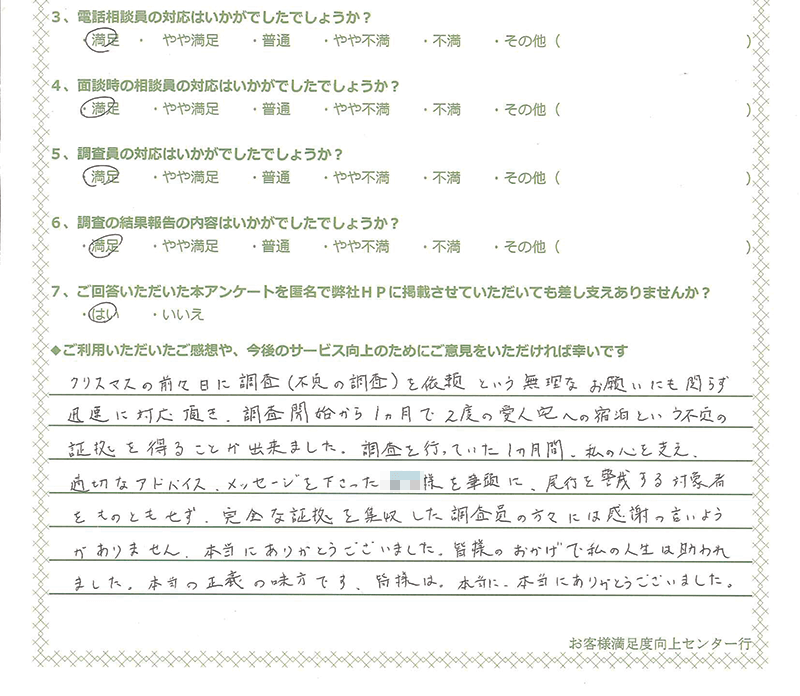 3、電話相談員の対応はいかがでしたでしょうか？
・満足 ・ やや満足 ・普通 ・やや不満 ・不満 ・その他（ ）
4、面談時の相談員の対応はいかがでしたでしょうか？
・満足 ・やや満足 ・普通 ・やや不満 ・不満 ・その他（ ）
5、調査員の対応はいかがでしたでしょうか？
・満足 ・やや満足 ・普通 ・やや不満 ・不満 ・その他（ ）
6、調査の結果報告の内容はいかがでしたでしょうか？
・満足 ・やや満足 ・普通 ・やや不満 ・不満 ・その他（ ）
7、ご回答いただいた本アンケートを匿名で弊社HPに掲載させていただいても差し支えありませんか？
・はい ・いいえ
◆ご利用いただいたご感想や、今後のサービス向上のためにご意見をいただければ幸いです
クリスマスの前々日に調査（不貞の調査）を依頼という無理なお願いにも関らず
迅速に対応頂き、調査開始から1ヵ月で2度の愛人宅への宿泊という不貞の
証拠を得ることが出来ました。調査を行っていた1ヵ月間、私の心を支え、
適切なアドバイス、メッセージを下さった 様を筆頭に、尾行を警戒する対象者
をものともせず、完全な証拠を集収した調査員の方々には感謝の言いよう
がありません。本当にありがとうございました。皆様のおかげで私の人生は助われ
ました。本当の正義の味方です、皆様は。本当に、本当にありがとうございました。
お客様満足度向上センター行